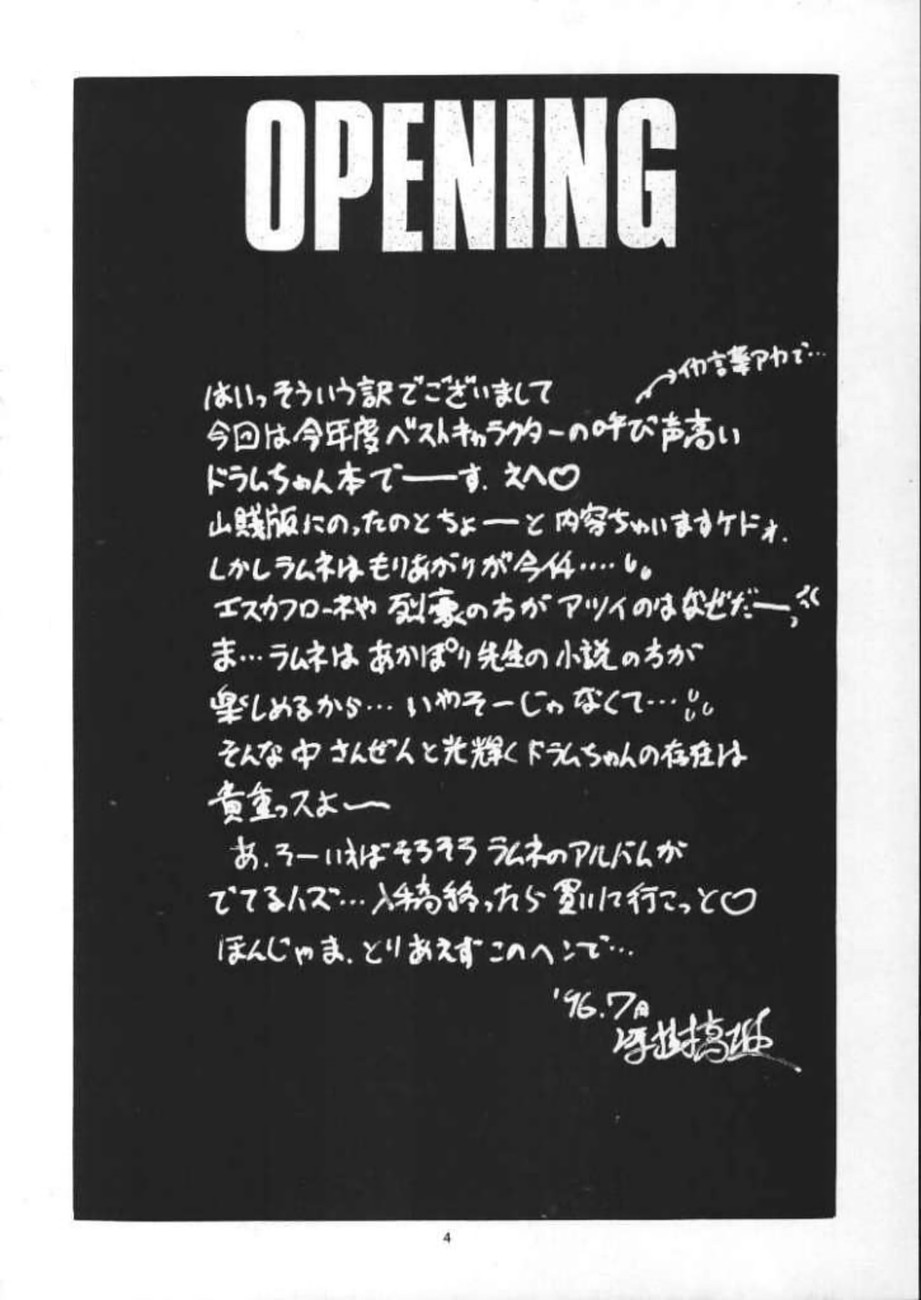 OPENING
はいっそういう訳でございまして
今回は今年度ベストキャラクターの呼び声高い
ドラムちゃん本でーーす.えへ♡
山賊版にのったのとちょーーと内容ちゃいますケドォ.
しかしラムネはもりあがりが今イ‥‥
エスカフローネや烈豪の方がアツイのはなぜだーーっ
ま…ラムネはあかほり先生の小説の方が
楽しめるから…いやそーじゃなくて…
そんな中さんぜんと光輝くドラムちゃんの存在は
貴重っスよ〜
あ.そーいえばそろそろラムネのアルバムが
でてるハズ…入稿終ったら買いに行こっと♡
ほんじゃま.とりあえずこのヘンで…
'96.7月
4